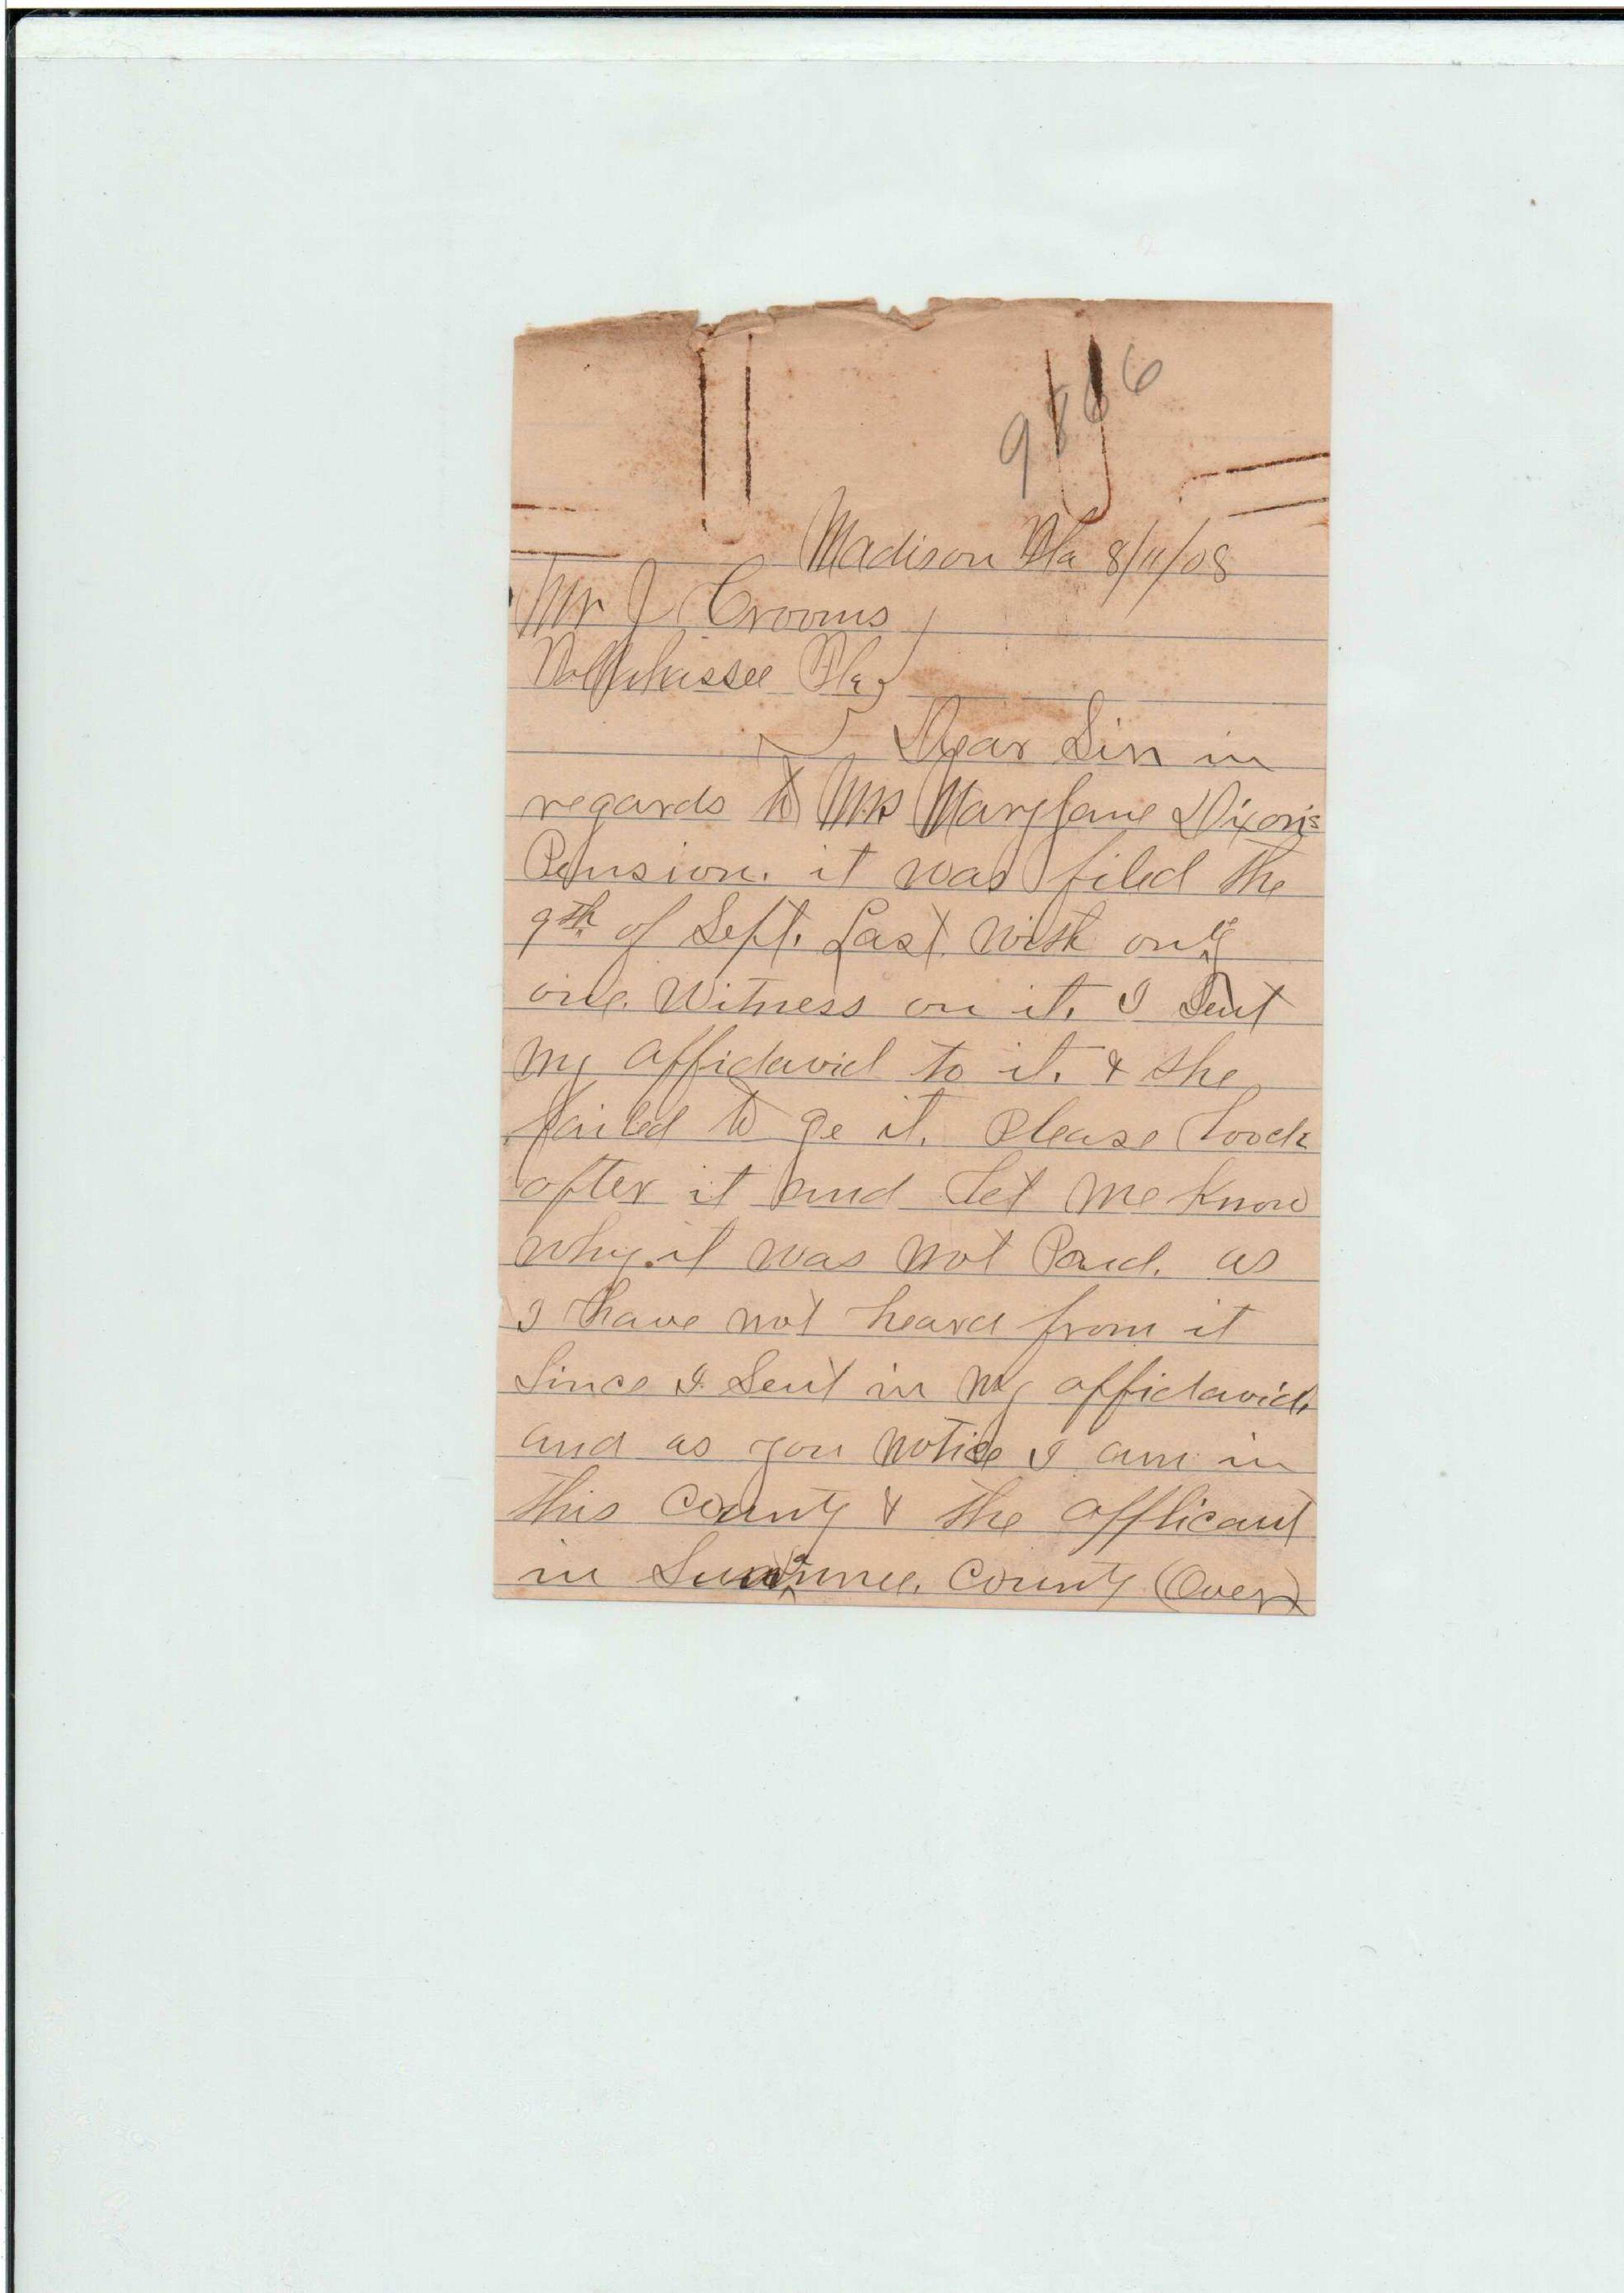 9866
Madison Fla 8/11/08
Mr J Crooms
Tallahassee Fla
Dear Sir in
regards to Mrs Mary Jane Dixon's
Pension. it was filed the
9th of Sept. Last with only
one Witness on it. I Sent
my affidavid to it. & she
failed to ge it. Please Loock
after it and Let me Know
why it was not Paid. as
I have not heard from it
Since I Sent in my affidavid.
and as you notice I am in
this County & the applicant
in Suwinnee County (Over)